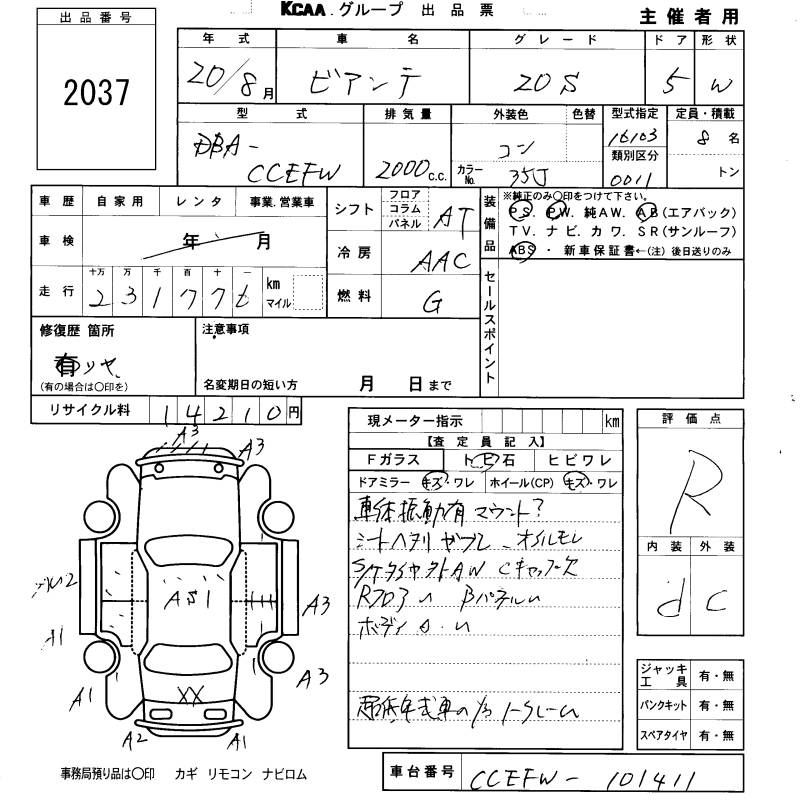 KCAA.グループ 出品票
主催者用
出品番号
2037
年式 車名 グレード ドア 形状
20/8月 ビアンテ 20S 5 W
型式 排気量 外装色 色替 型式指定 定員・積載
DBA-
CCEFW
2000c.c.
コン
カラーNo. 35J
16103
類別区分
0011
8名
トン
車歴 自家用 レンタ 事業.営業車
車検 年 月
走行 十万 万 千 百 十 一
2 3 1 7 7 6 km マイル
シフト フロア コラム パネル AT
冷房 AAC
燃料 G
装備品
※純正のみ〇印をつけて下さい。
PS. PW. 純AW. AB(エアバック)
TV. ナビ. カワ. SR(サンルーフ)
ABS ・ 新車保証書←(注) 後日送りのみ
セールスポイント
修復歴 箇所
有 リヤ
(有の場合は〇印を)
注意事項
名変期日の短い方 月 日まで
リサイクル料 14210円
現メーター指示 km
【査定員記入】
Fガラス トビ石 ヒビワレ
ドアミラー キズ.ワレ ホイール(CP) キズ.ワレ
車体振動有 マウント?
シートヘタリ ヤブレ オイルモレ
S/ケタイヤ 外AW Cキャップ欠
Rフロアu Bパネルu
ボディ a.u
評価点
R
内装 外装
d c
ジャッキ
工具 有・無
パンクキット 有・無
スペアタイヤ 有・無
A3
A3
AS1
A3
A1
A3
A1
XX
A2
A1
事務局預り品は〇印 カギ リモコン ナビロム
車台番号 CCEFW-101411